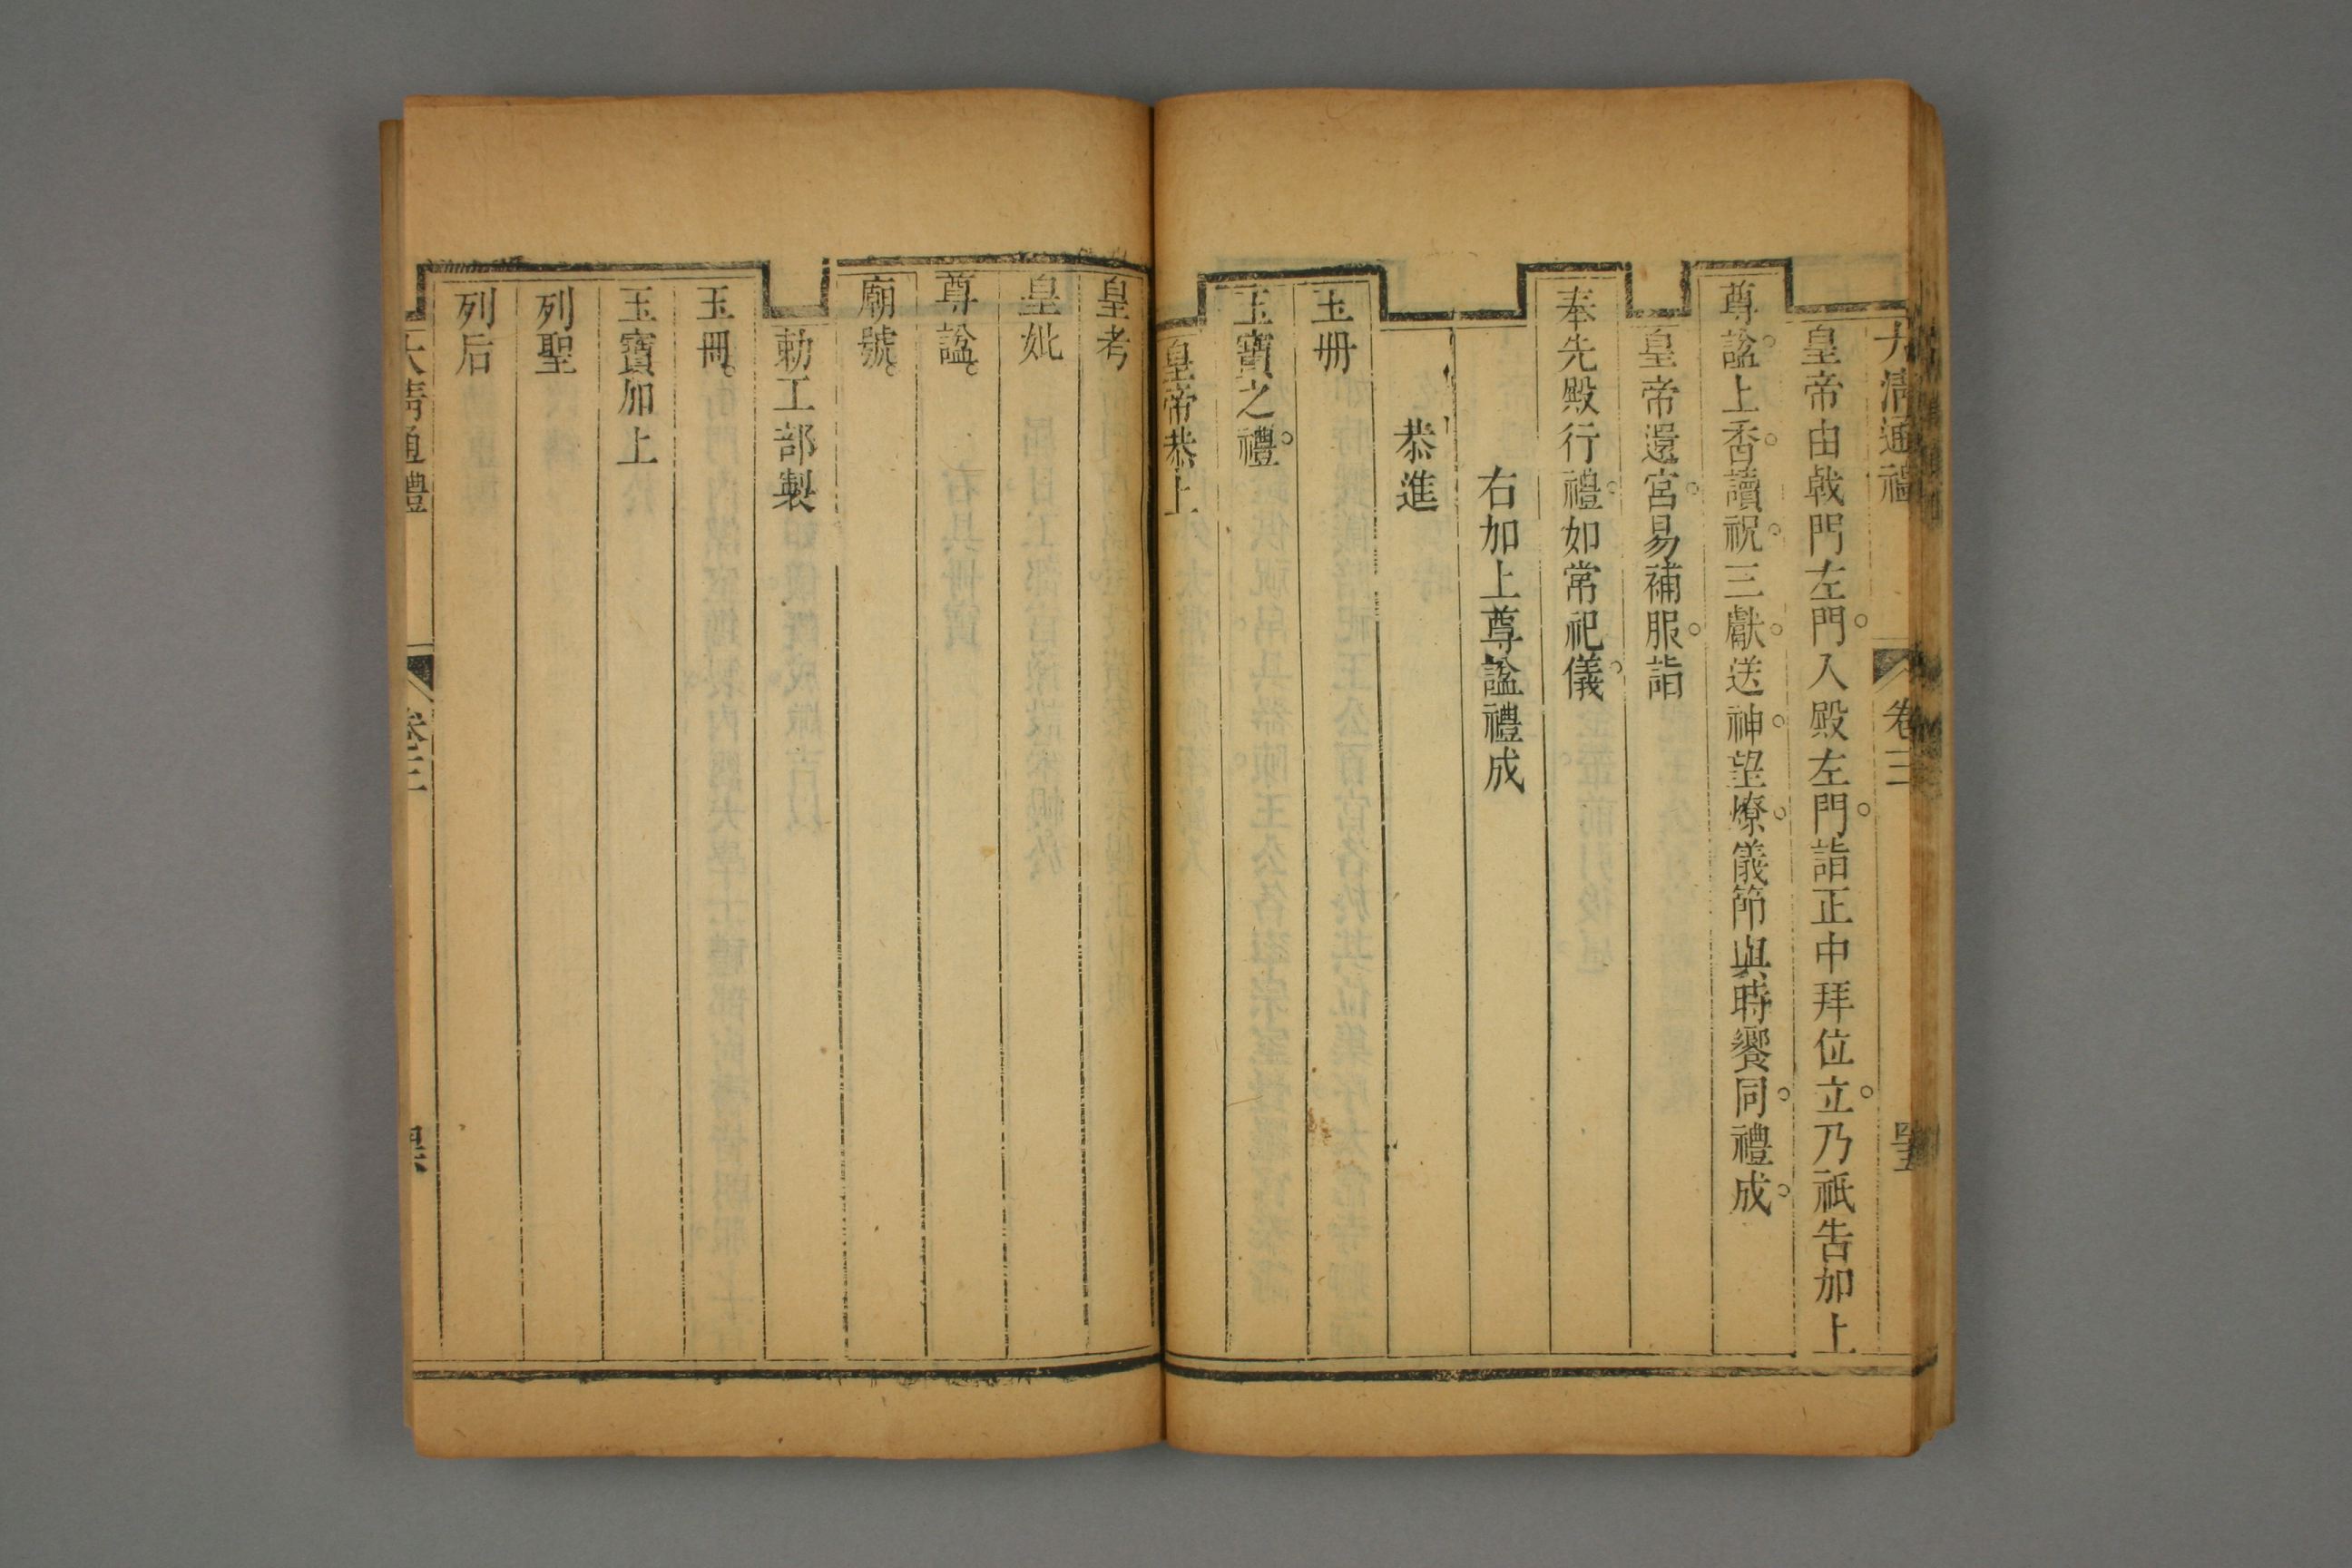 大清通禮 卷三
皇帝由戟門左門。入殿左門。詣正中拜位立。乃祇告加上
尊諡。上香。讀祝。三獻。送神。望燎。儀節與時饗同。禮成。
皇帝還宮。易補服。詣
奉先殿行禮。如常祀儀。
右加上尊諡禮成
恭進
玉册
玉寶之禮。
皇帝恭上
皇考
皇妣
尊諡。
廟號。
勅工部製
玉冊。
玉寶加上
列聖
列后
大清通禮 卷三